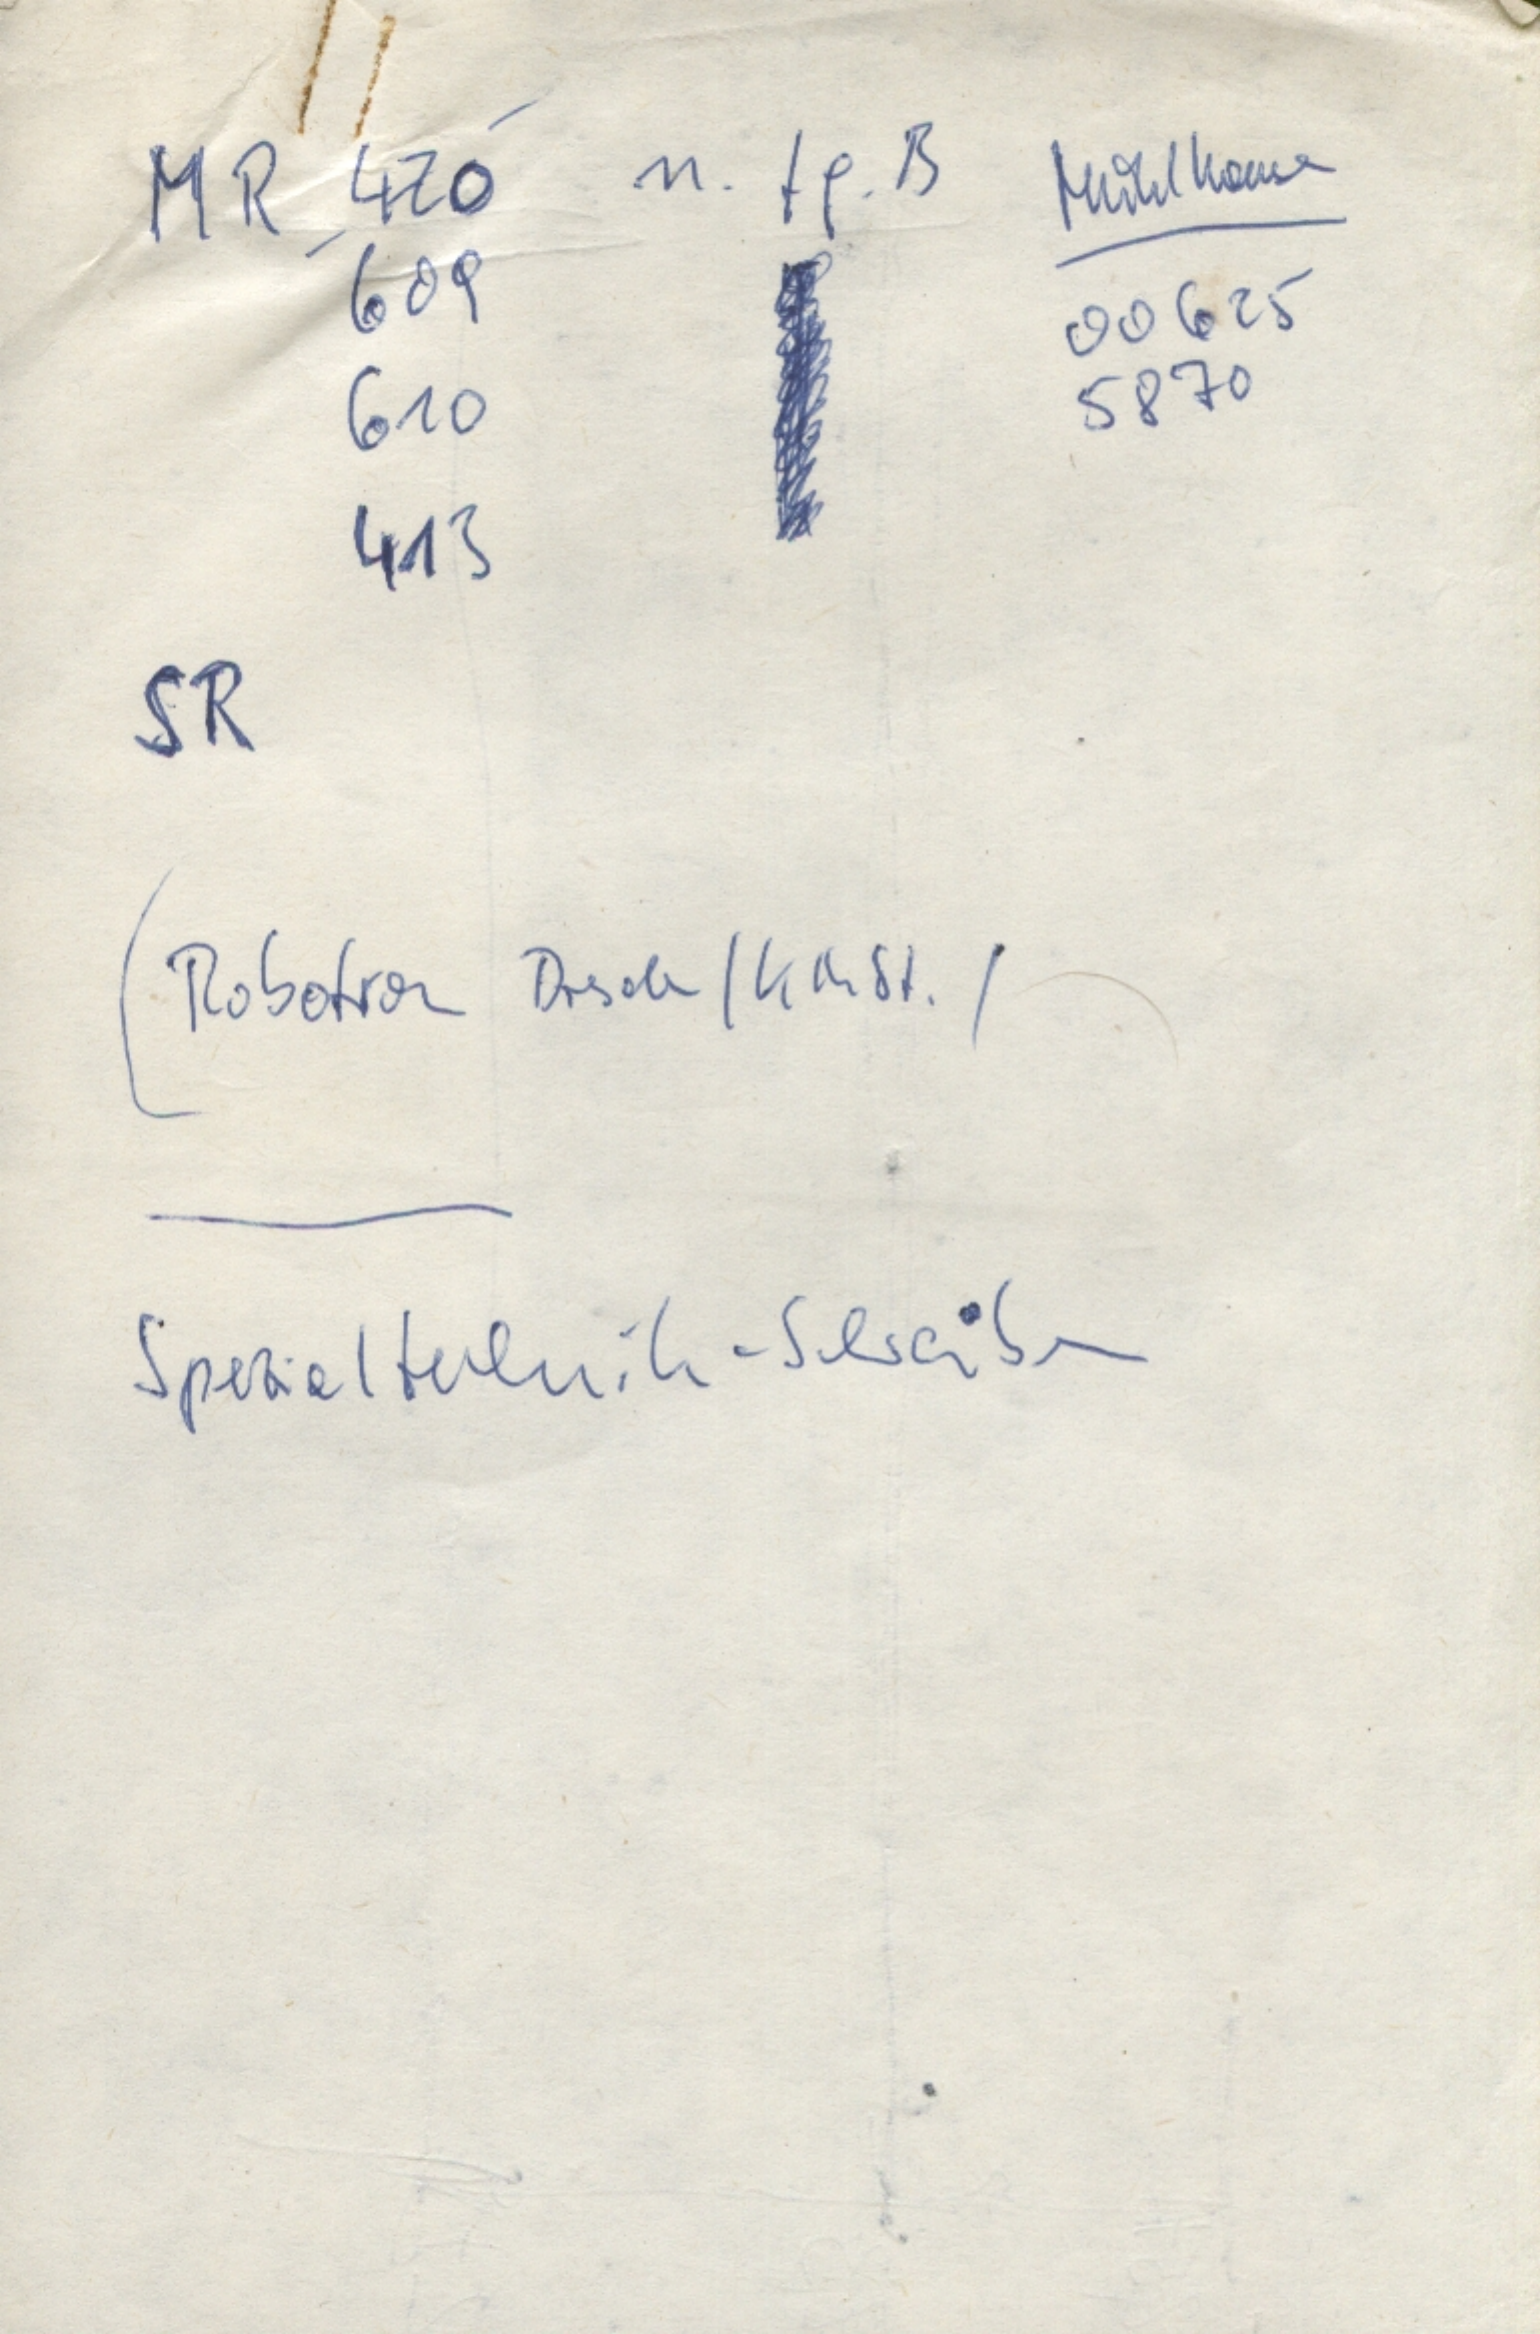 MR 420 n. tg. B Mühlhausen
609 00625
610 5870
413
SR
(Robotron Dresden / KMSt. /
Spezialtechnik-Schreiben